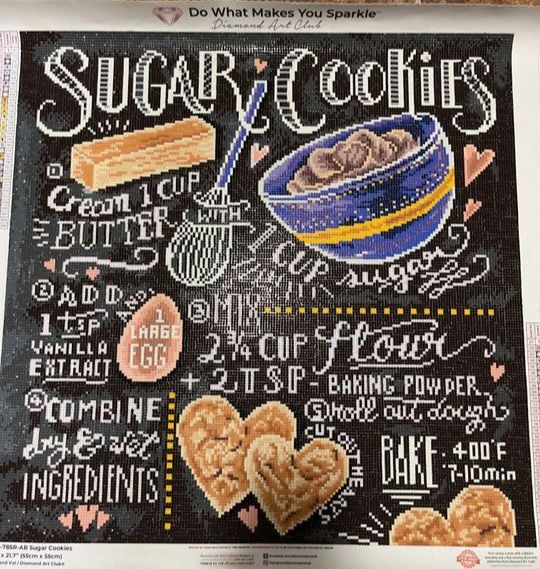 Do What Makes You Sparkle™
Diamond Art Club
SUGAR COOKIES
1
Cream 1 CUP
BUTTER
WITH
1 CUP
sugar
2 ADD
1 tsp
VANILLA
EXTRACT
1
LARGE
EGG
3 MIX
2 3/4 CUP flour
+ 2 TSP - BAKING POWDER
4 COMBINE
dry & wet
INGREDIENTS
5 roll out dough
CUT OUT HEARTS
BAKE 400°F
7-10 min
-785R-AB Sugar Cookies
x 21.7" (55cm x 55cm)